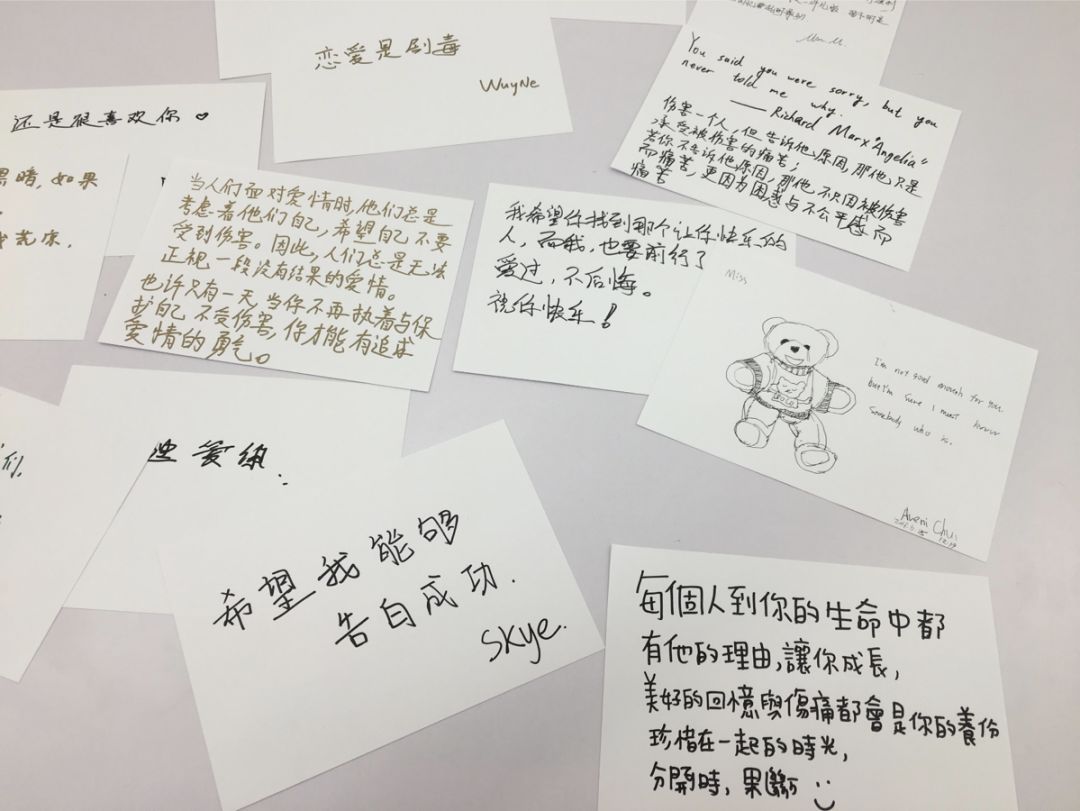 恋爱是剧毒
WuyNe
You said you were sorry, but you
never told me why.
—— Richard Marx "Angelia"
伤害一个人，但告诉他原因，那他只是
承受被伤害的痛苦；
若你不告诉他原因，那他不只因被伤害
而痛苦，更因为困惑与不公平感而
痛苦
还是很喜欢你♡
时，如果
当人们面对爱情时，他们总是
考虑着他们自己，希望自己不要
受到伤害。因此，人们总是无法
正视一段没有结果的爱情。
也许只有一天，当你不再执着与保
护自己不受伤害，你才能有追求
爱情的勇气。
我希望你找到那个让你快乐的
人，而我，也要前行了
爱过，不后悔。
祝你快乐！
Miss
I'm not good enough for you
but I'm sure I must know
somebody who is.
Avern Chu.
们.
希望我能够
告白成功.
Skye.
每個人到你的生命中都
有他的理由,讓你成長,
美好的回憶與傷痛都會是你的養份
珍惜在一起的時光,
分開時,果斷